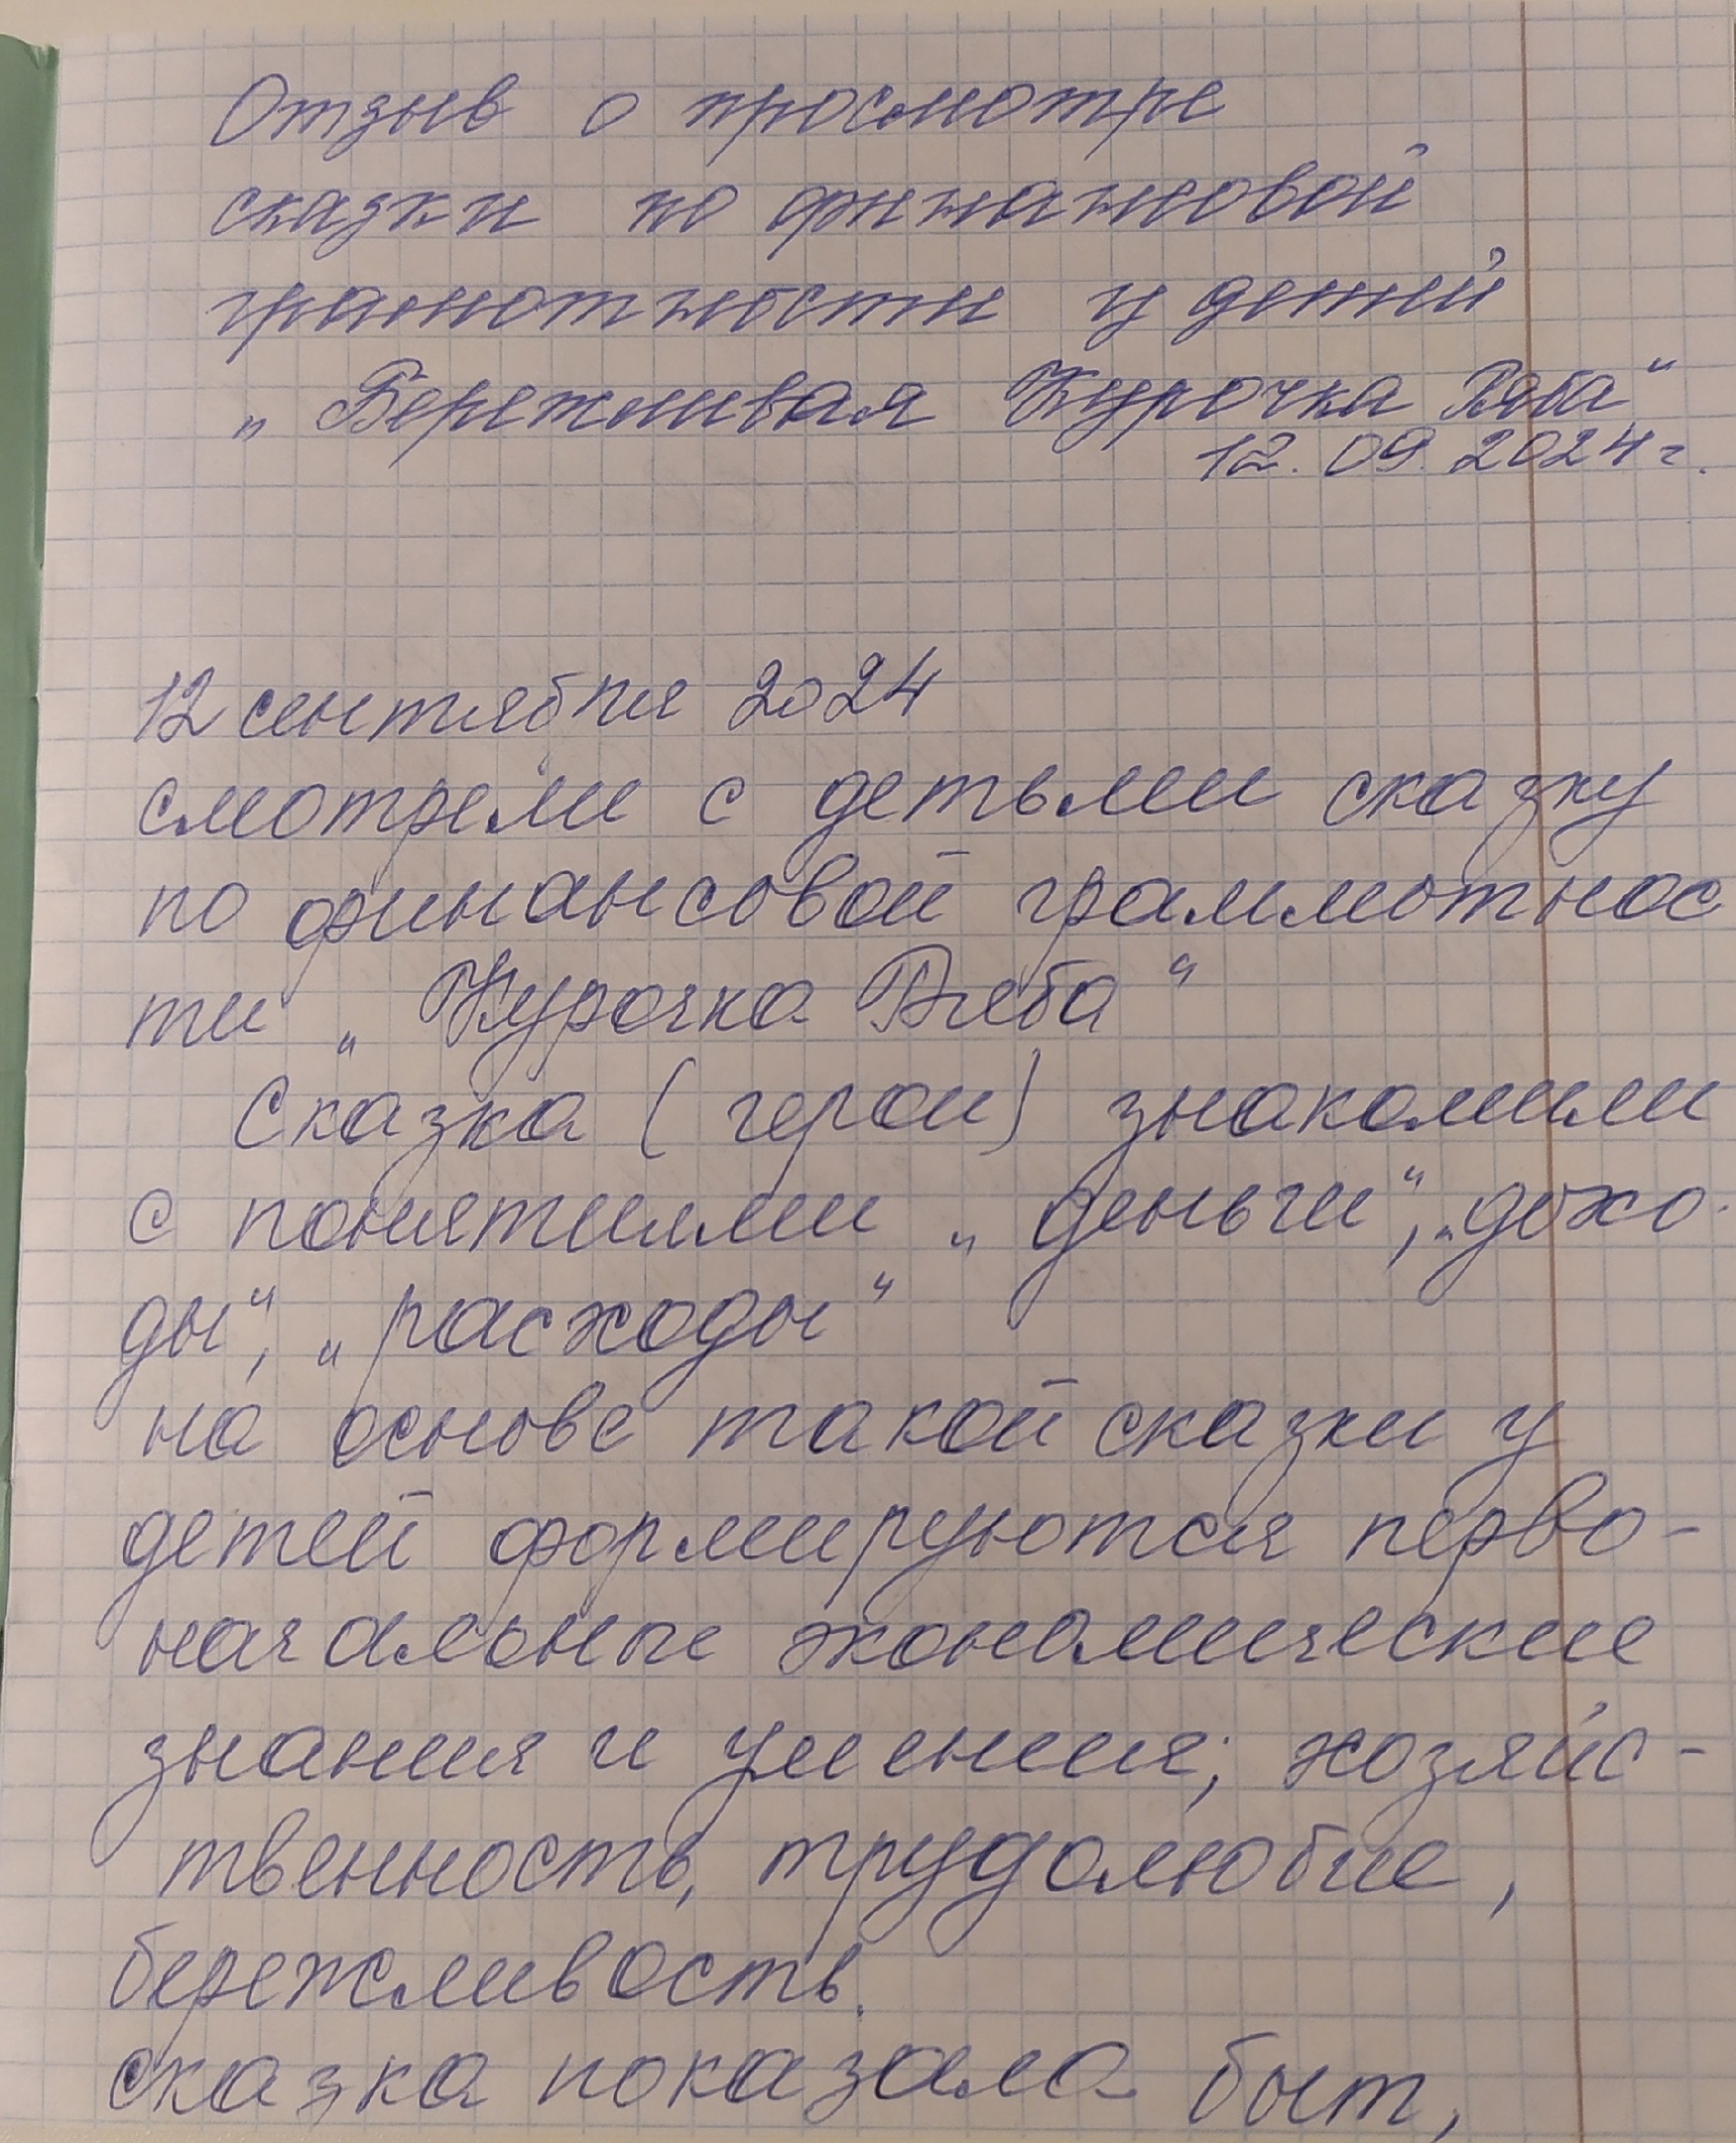 Отзыв о просмотре
сказки по финансовой
грамотности у детей
„Бережливая Курочка Ряба“
12.09.2024г.
12 сентября 2024
смотрели с детьми сказку
по финансовой граммотнос
ти „Курочка Ряба“
Сказка (герои) знакомили
с понятиями „деньги“, „дохо-
ды“, „расходы“
на основе такой сказки у
детей формируются перво-
начальные экономические
знания и умения; хозяйс-
твенность, трудолюбие,
бережливость.
сказка показала быт,